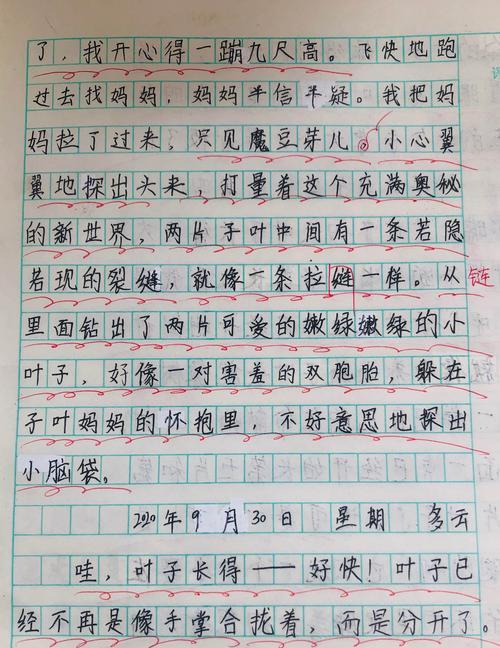 了，我开心得一蹦九尺高。飞快地跑
过去找妈妈，妈妈半信半疑。我把妈
妈拉了过来，只见魔豆芽儿。小心翼
翼地探出头来，打量着这个充满奥秘
的新世界，两片子叶中间有一条若隐
若现的裂缝，就像一条拉缝一样。从
链车
里面钻出了两片可爱的嫩绿嫩绿的小
叶子，好像一对害羞的双胞胎，躲在
子叶妈妈的怀抱里，不好意思地探出
小脑袋。
2020年9月30日 星期 多云
哇，叶子长得——好快！叶子已
经不再是像手掌合拢着，而是分开了。